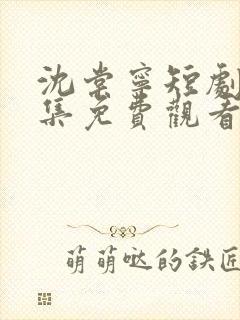 沈棠寧短劇
集免費觀看
萌萌噠的鉄匠